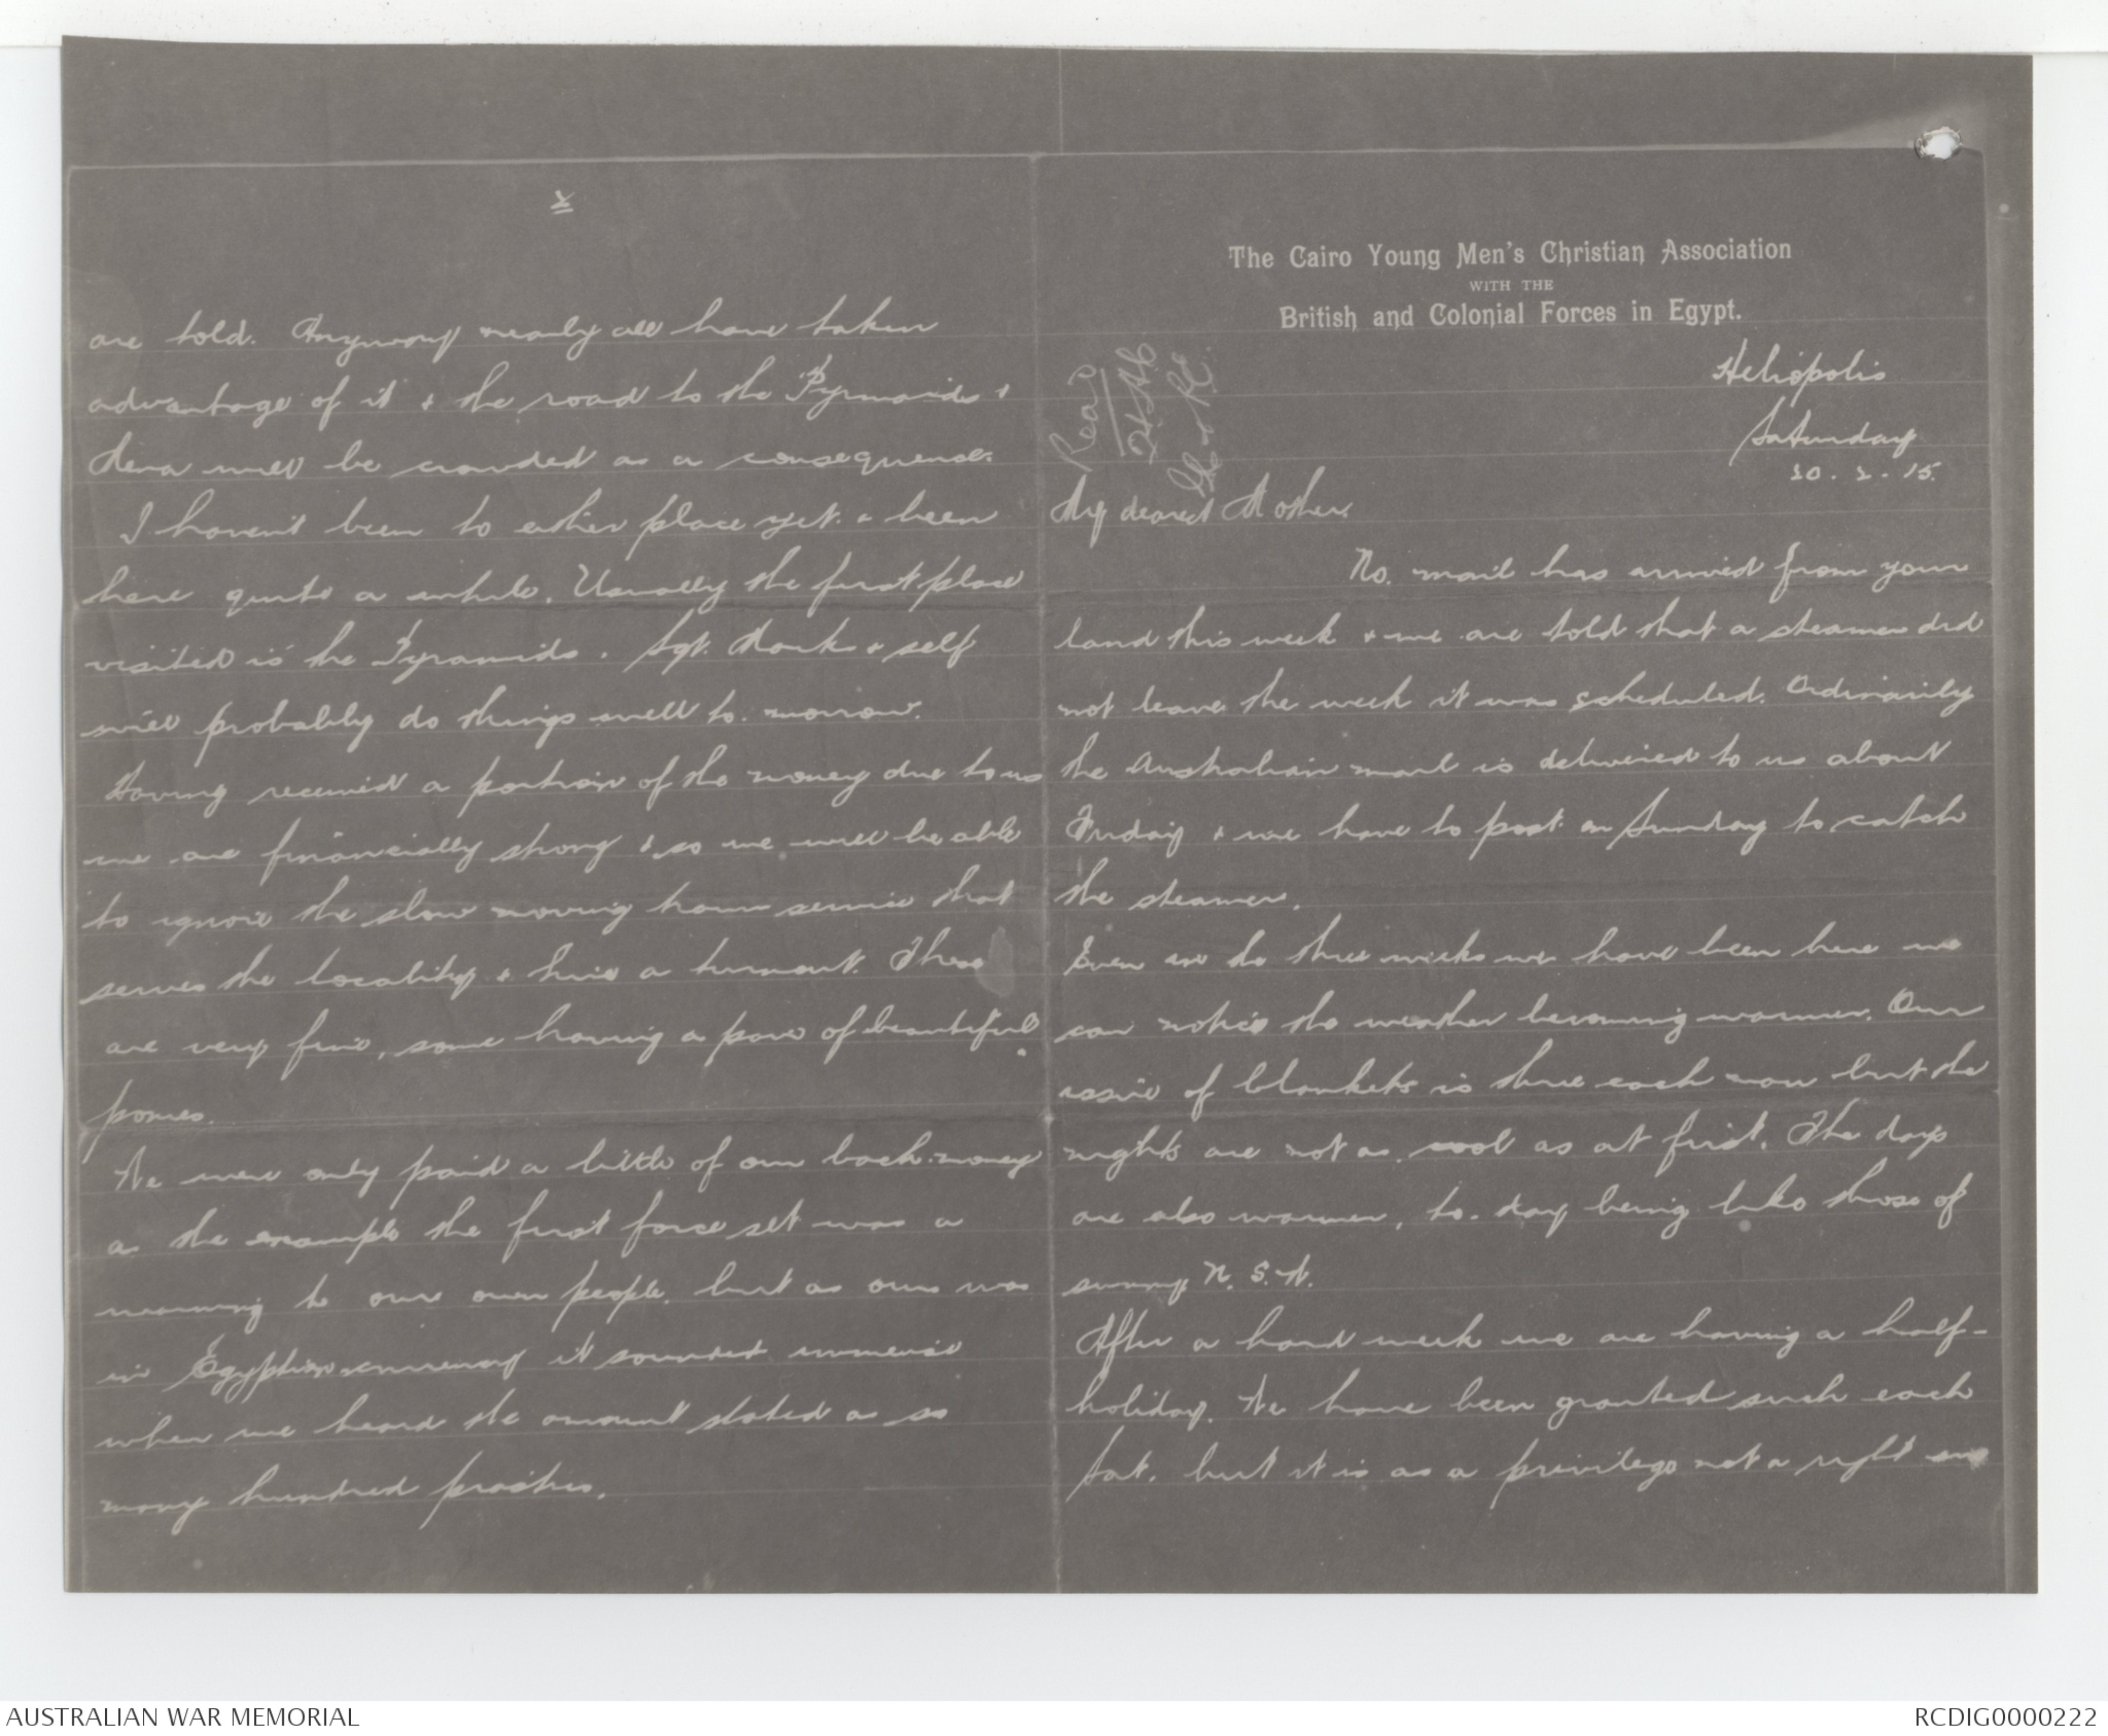 The Cairo Young Men's Christian Association
WITH THE
British and Colonial Forces in Egypt.
Heliopolis
Saturday
20. 2. 15.
My dearest Mother,
No. mail has arrived from your
land this week & we are told that a steamer did
not leave the week it was scheduled. Ordinarily
the Australian mail is delivered to us about
Friday & we have to post on Sunday to catch
the steamer.
Even in the three weeks we have been here we
can notice the weather becoming warmer. Our
issue of blankets is three each now but the
nights are not as cool as at first. The days
are also warmer, to-day being like those of
sunny N. S. W.
After a hard week we are having a half-
holiday. We have been granted such each
Sat. but it is as a privilege not a right we
2
are told. Anyway nearly all have taken
advantage of it & the road to the Pyramids &
Mena will be crowded as a consequence.
I haven't been to either place yet & been
here quite a while. Usually the first place
visited is the Pyramids. Sgt. & self
will probably do things well to-morrow.
Having received a portion of the money due to us
we are financially strong & so we will be able
to ignore the slow moving tram service that
serves the locality & hire a turnout. These
are very fine, some having a pair of beautiful
ponies.
We were only paid a little of our back-money
as the example the first force set was a
warning to our own people, but as ours was
in Egyptian currency it sounded immense
when we heard the amount stated as so
many hundred piastres.
AUSTRALIAN WAR MEMORIAL
RCDIG0000222